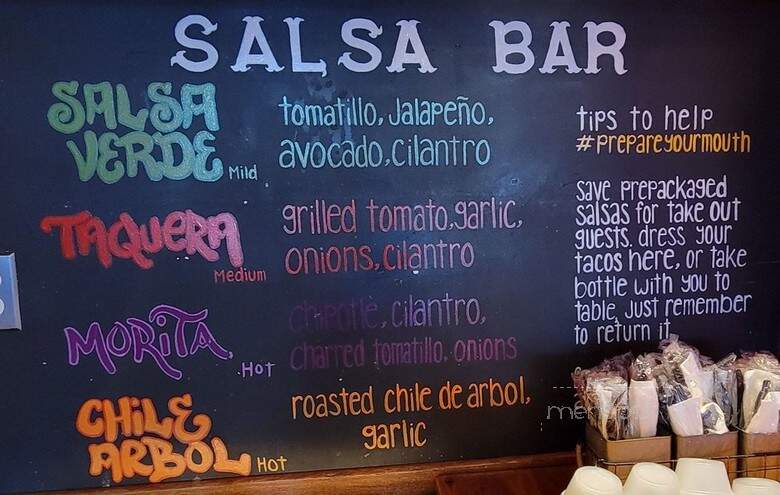 SALSA BAR
SALSA
VERDE Mild
tomatillo, Jalapeño,
avocado, cilantro
TAQUERA
Medium
grilled tomato, garlic,
onions, cilantro
MORITA Hot
chipotle, cilantro,
charred tomatillo, onions
CHILE
ARBOL HOT
roasted chile de arbol,
garlic
tips to help
#prepareyourmouth
save prepackaged
salsas for take out
guests. dress your
tacos here, or take
bottle with you to
table. Just remember
to return it